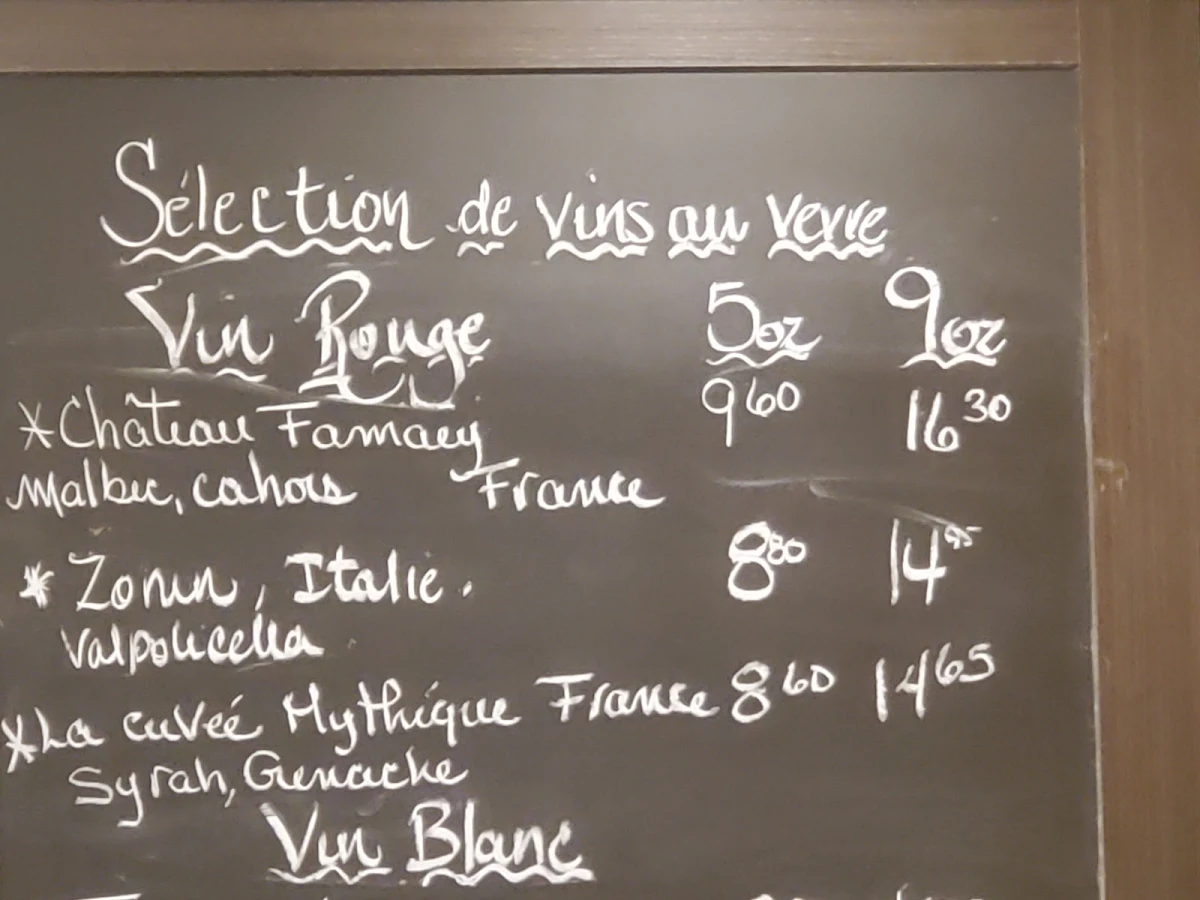 Sélection de vins au verre
Vin Rouge 5oz 9oz
*Château Famaey 9 60 16 30
Malbec, cahors France
* Zonin, Italie. 8 80 14 95
Valpolicella
*La cuveé Mythique France 8 60 14 65
Syrah, Grenache
Vin Blanc